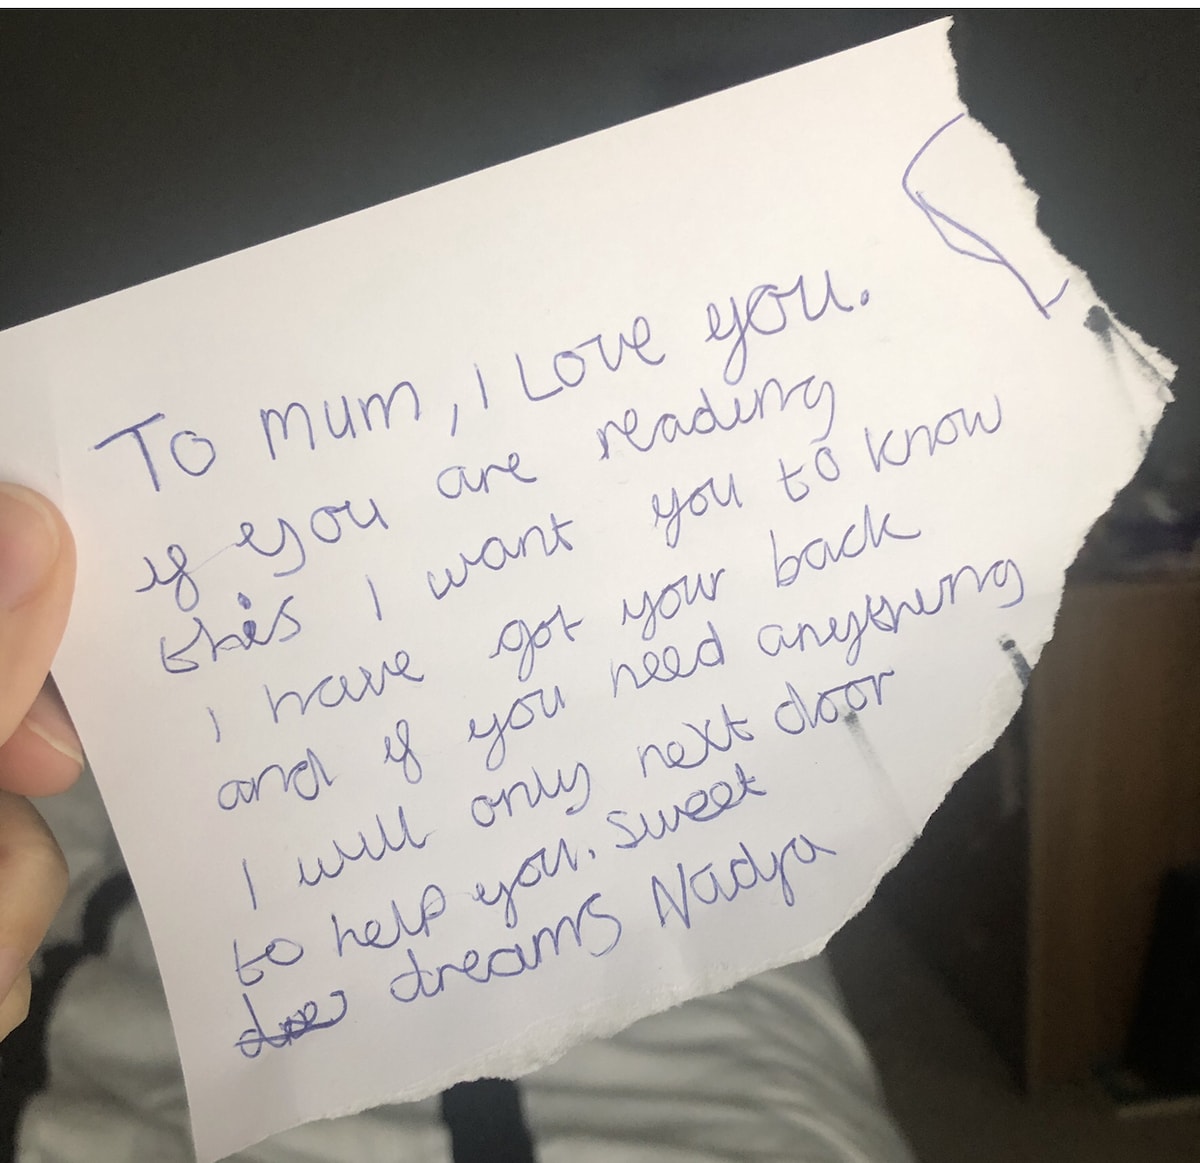 To mum, I Love you.
if you are reading
this I want you to know
I have got your back
and if you need anything
I will only next door
to help you. Sweet
dreams Nadya